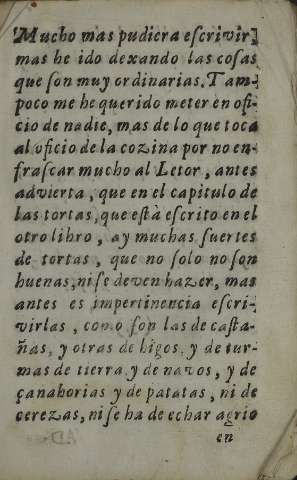 Mucho mas pudiera escrivir,
mas he ido dexando las cosas
que son muy ordinarias. Tam-
poco me he querido meter en ofi-
cio de nadie, mas de lo que toca
al oficio de la cozina por no en-
frascar mucho al Letor, antes
advierta, que en el capitulo de
las tortas, que està escrito en el
otro libro, ay muchas suertes
de tortas, que no solo no son
buenas, ni se deven hazer, mas
antes es impertinencia escri-
virlas, como son las de casta-
ñas, y otras de higos, y de tur-
mas de tierra, y de navos, y de
çanahorias y de patatas, ni de
cerezas, ni se ha de echar agrio
en